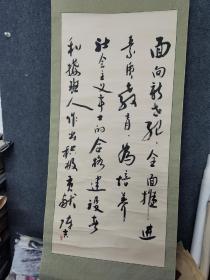 面向新世纪全面推进
素质教育为培养
社会主义事业的合格建设者
和接班人作出积极贡献